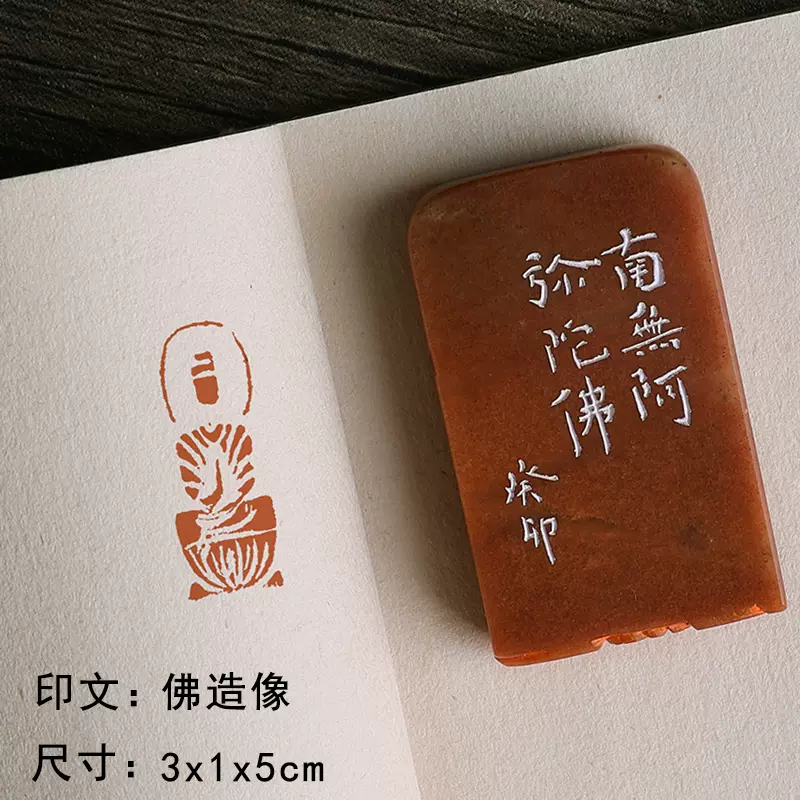 南無阿
弥陀佛
癸卯
印文：佛造像
尺寸：3x1x5cm